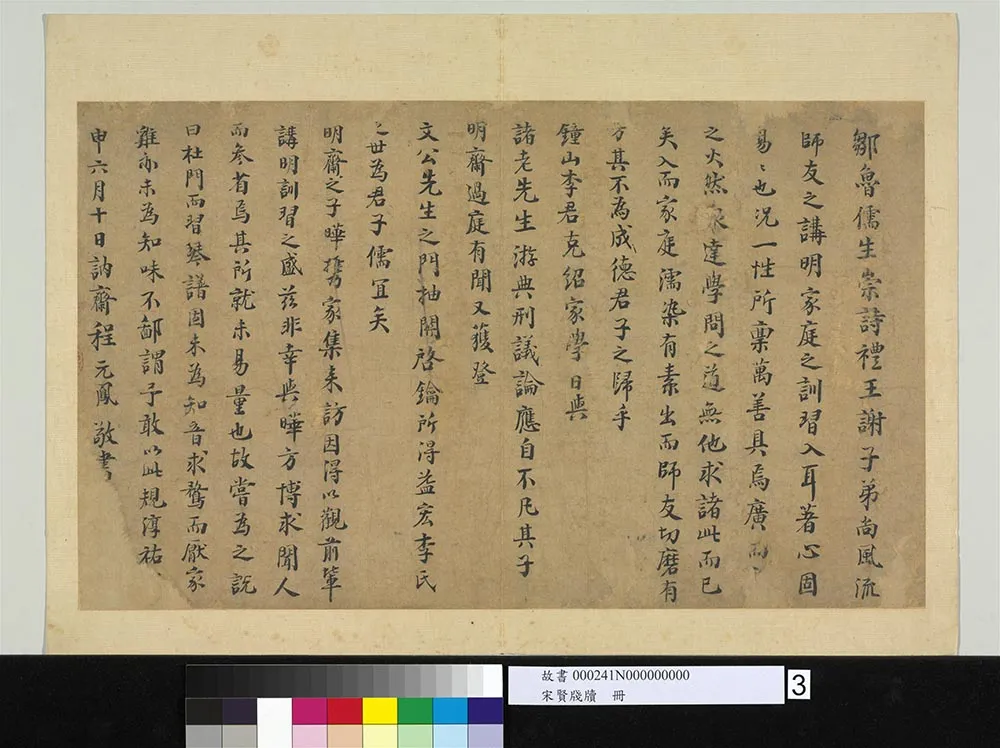 鄒魯儒生崇詩禮王謝子弟尚風流
師友之講明家庭之訓習入耳著心固
易〻也況一性所稟萬善具焉廣而
之火然泉達學問之道無他求諸此而已
矣入而家庭濡染有素出而師友切磨有
方其不為成德君子之歸乎
鐘山李君克紹家學日與
諸老先生游典刑議論應自不凡其子
明齋過庭有聞又獲登
文公先生之門抽關啓鑰所得益宏李氏
之世為君子儒宜矣
明齋之子曄攜家集來訪因得以觀前輩
講明訓習之盛茲非幸與曄方博求聞人
而參省焉其所就未易量也故嘗為之說
曰杜門而習琴譜固未為知音求鶩而厭家
雞亦未為知味不鄙謂予敢以此規淳祐
申六月十日訥齋程元鳳敬書
故書 000241N000000000
宋賢牋牘 冊
3